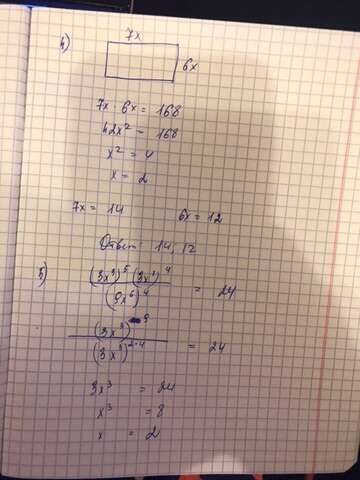 4)
7x
6x
7x · 6x = 168
42x² = 168
x² = 4
x = 2
7x = 14
6x = 12
Ответ: 14, 12
5)
(3x³)⁵(3x³)⁴ / (9x⁶)⁴ = 24
(3x³)⁹ / (3x³)²·⁴ = 24
3x³ = 24
x³ = 8
x = 2